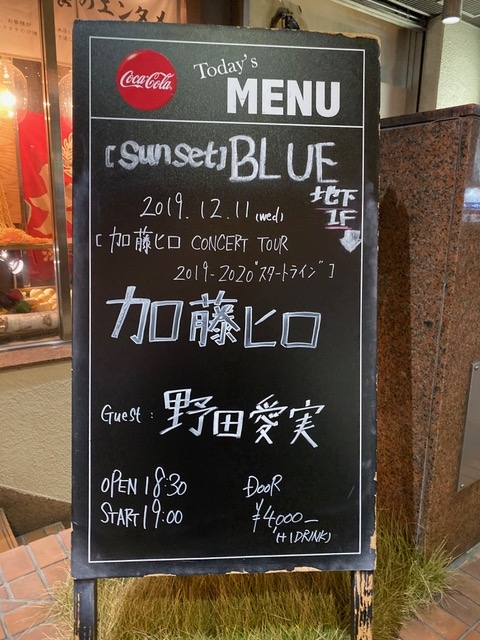 Coca-Cola
Today's
MENU
[Sunset] BLUE
地下
1F
2019.12.11 (wed)
[加藤ヒロ CONCERT TOUR
2019-2020 "スタートライン"]
加藤ヒロ
Guest: 野田愛実
OPEN 18:30
START 19:00
DOOR
¥4000-
(+1DRINK)